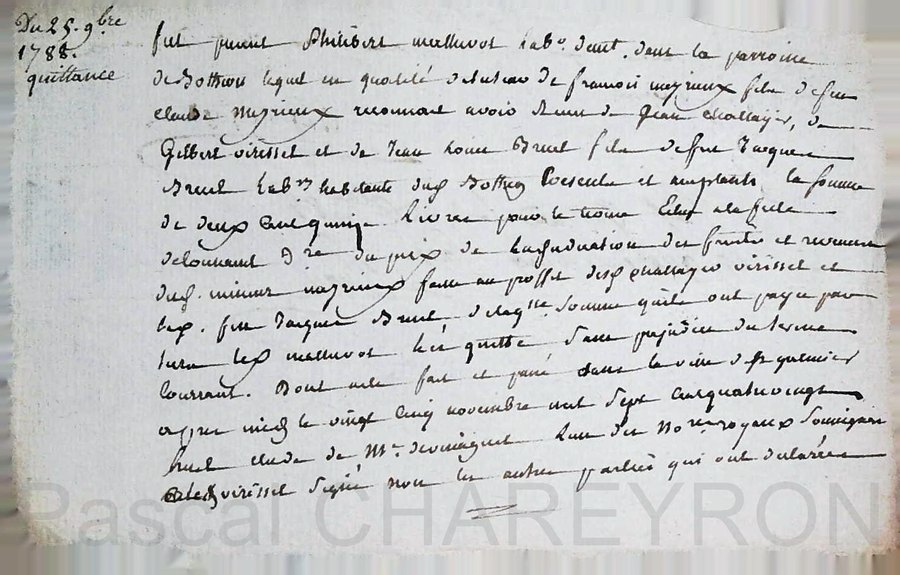 Du 25. 9bre
1788.
quittance
fut present Philibert malluvot lab.r dem.t dans la parroisse
de Bothéon lequel en qualité de tuteur de francois meyrieux fils de feu
claude Meyrieux reconnait avoir recu de Jean challayer, de
Gilbert virissel et de Jean Louis Breuil fils de feu Jacques
Breuil lab.rs habitants dud Bothéon Presents et acceptants la somme
de deux Cent quinze Livres pour le terme Echu a la fete
de toussaint d.re du prix de L'adjudication des fruits et revenus
dud. mineur meyrieux faite au proffit desd challayer virissel et
led. feu Jacques Breuil de laq.lle somme qu'ils ont payée
led malluvot les quitte sans prejudice du terme
Courrant. Dont acte fait et passé dans la ville de St galmier
apres midy le vingt Cinq novembre mil Sept Cent quatre vingt
huit Etude de M.e L'un des No.res royaux Soussignés
et led virissel Signé non les autres parties qui ont declarées
Pascal CHAREYRON